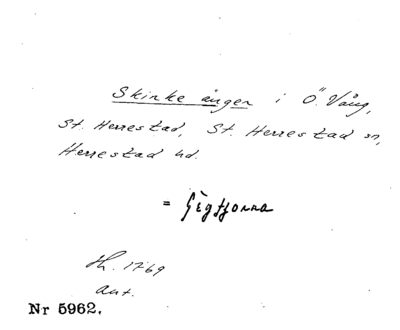 Skinke ängen i Ö. Vång,
St. Herrestad, St. Herrestad sn,
Herrestad hd.
=
Lh. 1769
ant.
Nr 5962.